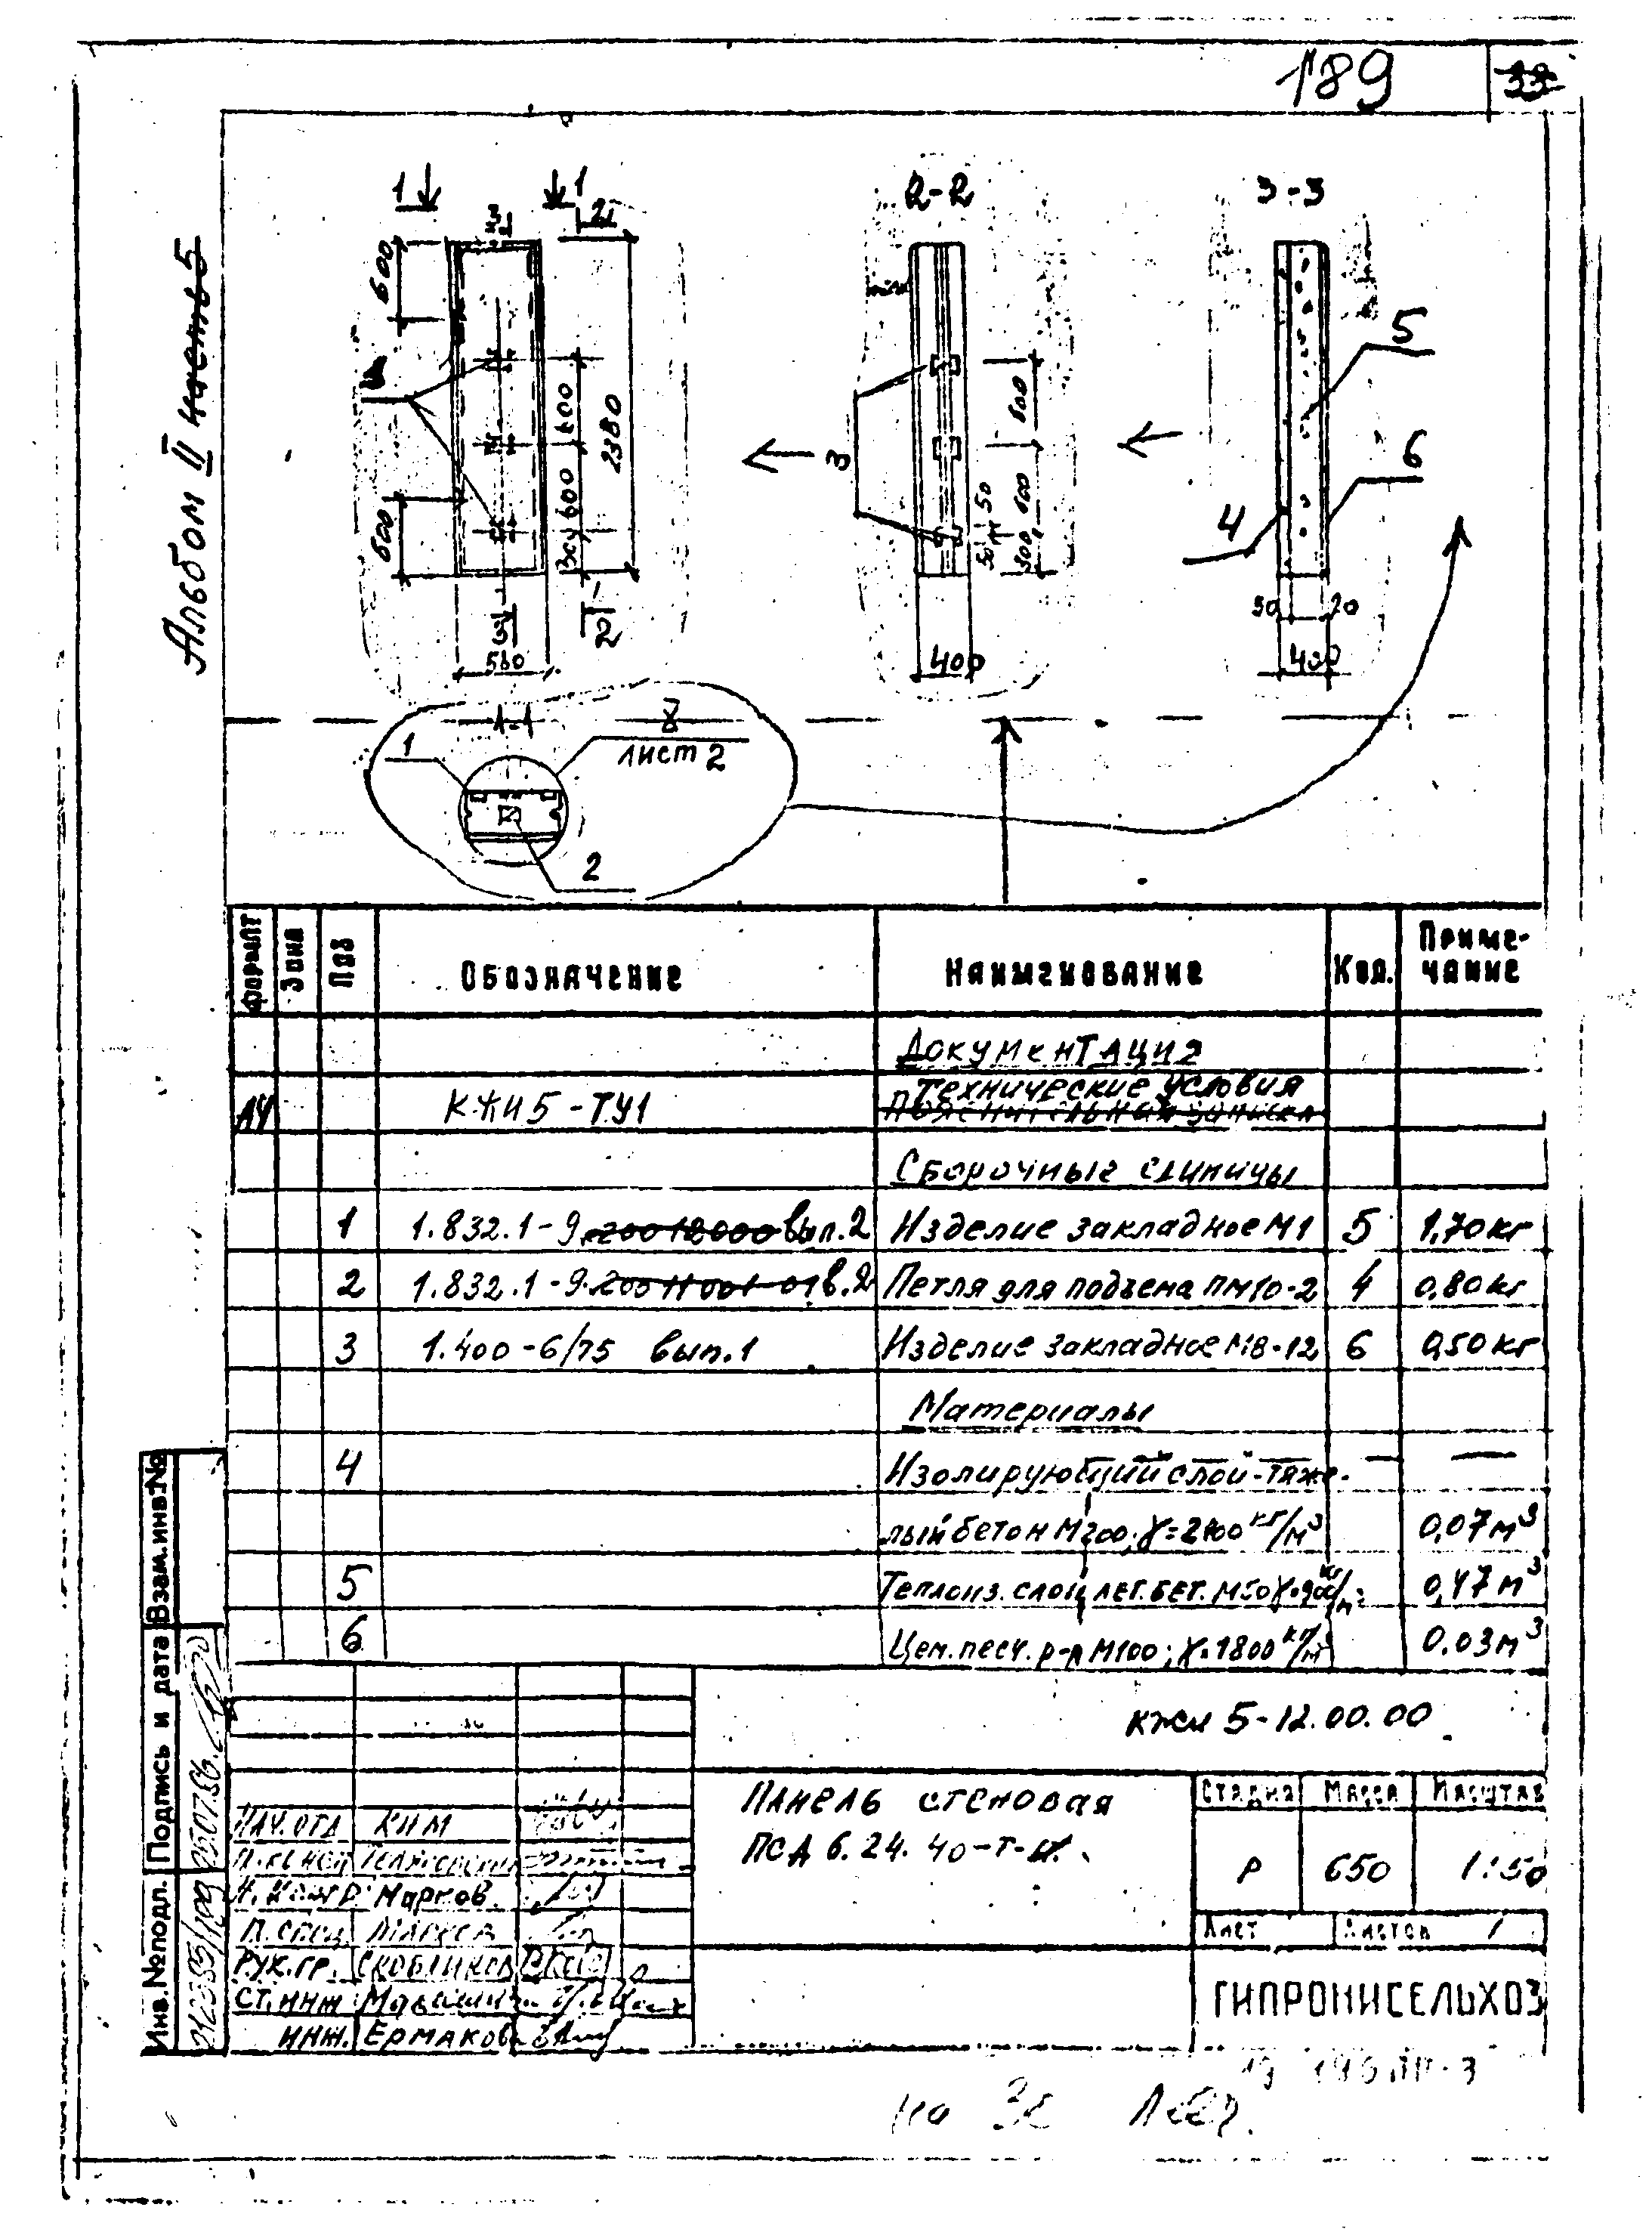 189
33
Альбом II часть 5
1
1
3
2
600
600
600
600
2380
3
2
560
2-2
3
600
600
50
50
300
400
3-3
5
6
4
30
20
400
1-1
1
лист 2
2
Формат
Зона
Поз
Обозначение
Наименование
Кол.
Приме-
чание
Документация
Технические условия
А4
КЖИ5-ТУ1
Пояснительная записка
Сборочные единицы
1
1.832.1-9.20012000 вып.2
Изделие закладное М1
5
1,70 кг
2
1.832.1-9.20011001-01 в.2
Петля для подъема ПМ10-2
4
0,80 кг
3
1.400-6/75 вып.1
Изделие закладное М8-12
6
0,50 кг
Материалы
4
Изолирующий слой-тяже-
лый бетон М200; γ=2400 кг/м³
0,07 м³
5
Теплоиз. слой лег. бет. М50 γ=900 кг/м³
0,47 м³
6
Цем. песч. р-р М100; γ=1800 кг/м³
0.03 м³
КЖИ 5-12.00.00
Панель стеновая
ПСД 6.24.40-Т-
Стадия
Масса
Масштаб
Р
650
1:50
Лист
Листов 1
ГИПРОНИСЕЛЬХОЗ
Нач. отд
Ким
Н. контр.
Марков
Рук. гр.
Скобликов
Ст. инж
Инж.
Ермакова
Взам. инв. №
Подпись и дата
Инв. № подл.